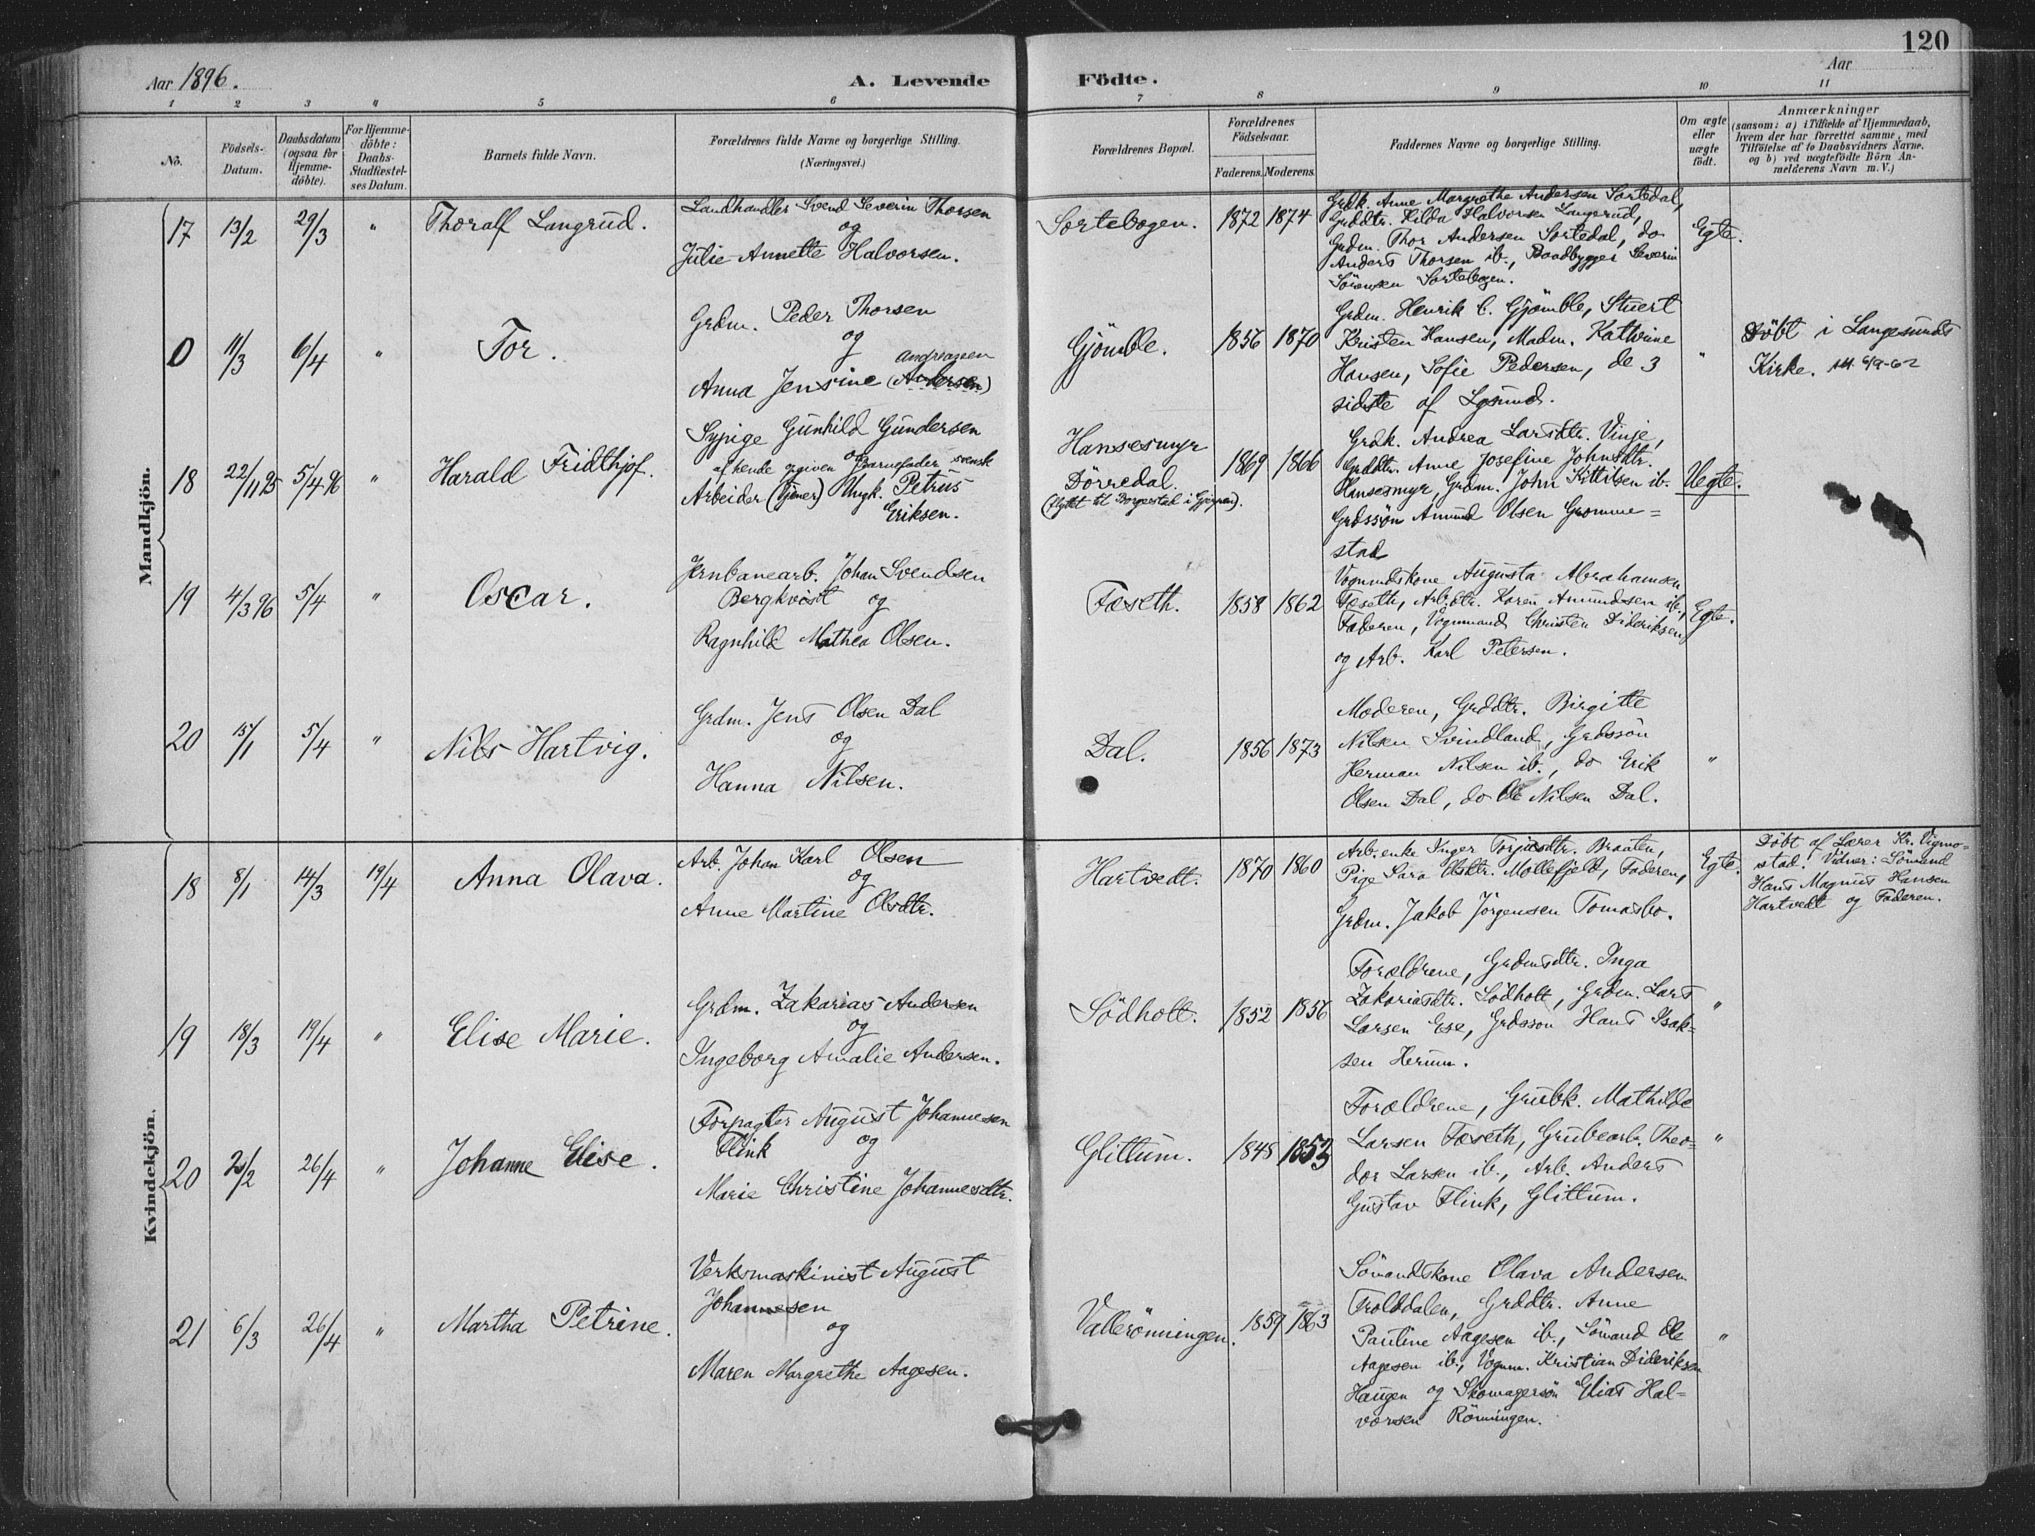 120
Aar 1896.
A. Levende Födte.
Aar
1 2 3 " 5 6 7 8 9 10 11
No.
Födsels-Datum.
Daabsdatum (ogsaa for Hjemme-döbte).
For Hjemme-döbte: Daabs-Stadfæstel-ses Datum.
Barnets fulde Navn.
Forældrenes fulde Navne og borgerlige Stilling. (Næringsvei.)
Forældrenes Bopæl.
Forældrenes Födselsaar.
Faderens. Moderens.
Faddernes Navne og borgerlige Stilling.
Om ægte eller uægte födt.
Anmærkninger (saasom: a) i Tilfælde af Hjemmedaab, hvem der har forrettet samme, med Tilföielse af to Daabsvidners Navne, og b) ved uægtefödte Börn An-melderens Navn m. V.)
Mandkjön.
17 13/2 29/3 " Thoralf Langrud.
Landhandler Svend Severin Thorsen
og
Julie Annette Halvorsen.
Sortebogen. 1872 1874
Grdk. Anne Margrethe Andersen Sortedal,
Grddtr. Hilda Halvorsen Langerud,
Grdm. Thor Andersen Sortedal, do
Anders Thorsen ib., Baadbygger Severin
Sörensen Sortebogen.
Egte.
0 11/3 6/4 " Tor.
Grdm. Peder Thorsen
og
Andreassen
Anna Jensine (Andersen)
Gjömle. 1856 1870
Grdm. Henrik C. Gjömble, Stuert
Kristen Hansen, Madm. Kathrine
Hansen, Sofie Pedersen, de 3
sidste af Lgsund.
"
Döbt i Langesunds
Kirke.
18 22/11 95 5/4 96 " Harald Fridthjof.
Sypige Gunhild Gundersen
og
af hende opgiven Barnefader svensk
Arbeider (tjener) Ungk. Petrus
Eriksen.
Hansesmyr
Dörredal.
(flyttet til Borgestad i Gjerpen).
1869 1866
Grdk. Andrea Larsdtr. Vinje,
Grddtr. Anne Josefine Johnsdtr.
Hansesmyr, Grdm. John Kittilsen ib.
Grdssön Amund Olsen Gromme=
stad
Uegte.
19 4/3 96 5/4 " Oscar.
Jernbanearb. Johan Svendsen
Bergkvist og
Ragnhild Mathea Olsen.
Fæseth. 1858 1862
Vognmdskone Augusta Abrahamsen
Fæseth, Arbdtr. Karen Amundsen ib.,
Faderen, Vognmand Christen Dideriksen
og Arb. Karl Petersen.
Egte.
20 15/1 5/4 " Nils Hartvig.
Grdm. Jens Olsen Dal
og
Hanna Nilsen.
Dal. 1856 1873
Moderen, Grddtr. Birgitte
Nilsen Svindland, Grdssön
Herman Nilsen ib., do Erik
Olsen Dal, do Ole Nilsen Dal.
"
Kvindekjön.
18 8/1 14/3 19/4 Anna Olava.
Arb. Johan Karl Olsen
og
Anne Martine Olsdtr.
Hartvedt. 1870 1860
Arb.enke Inger Torjusdtr. Braaten,
Pige Sara Olsdtr. Mollefjeld, Faderen,
Grdm. Jakob Jörgensen Tomasbo.
Egte.
Döbt af Lærer Kr. Vigmo-
stad. Vidner: Sömand
Hans Magnus Hansen
Hartvedt og Faderen.
19 18/3 19/4 " Elise Marie.
Grdm. Zakarias Andersen
og
Ingeborg Amalie Andersen.
Södholt. 1852 1856
Forældrene, Grdmsdtr. Inga
Zakariasdtr. Södholt, Grdm. Lars
Larsen Ese, Grdsson Hans Isak-
sen Herum.
"
20 2/2 26/4 " Johanne Elise.
Forpagter August Johannesen
Flink og
Marie Christine Johannesdtr.
Glittum. 1848 1853
Forældrene, Grubk. Mathilde
Larsen Fæseth, Grubearb. Theo-
dor Larsen ib., Arb. Anders
Gustav Flink, Glittum.
"
21 6/3 26/4 " Martha Petrine.
Verksmaskinist August
Johannesen
og
Maren Margrethe Aagesen.
Valleröningen. 1859 1863
Sömandskone Olava Andersen
Trolddalen, Grddtr. Anne
Pauline Aagesen ib., Sömand Ole
Aagesen ib., Vognm. Kristian Dideriksen
Haugen og Skomagersön Elias Hal-
vorsen Rönningen.
"